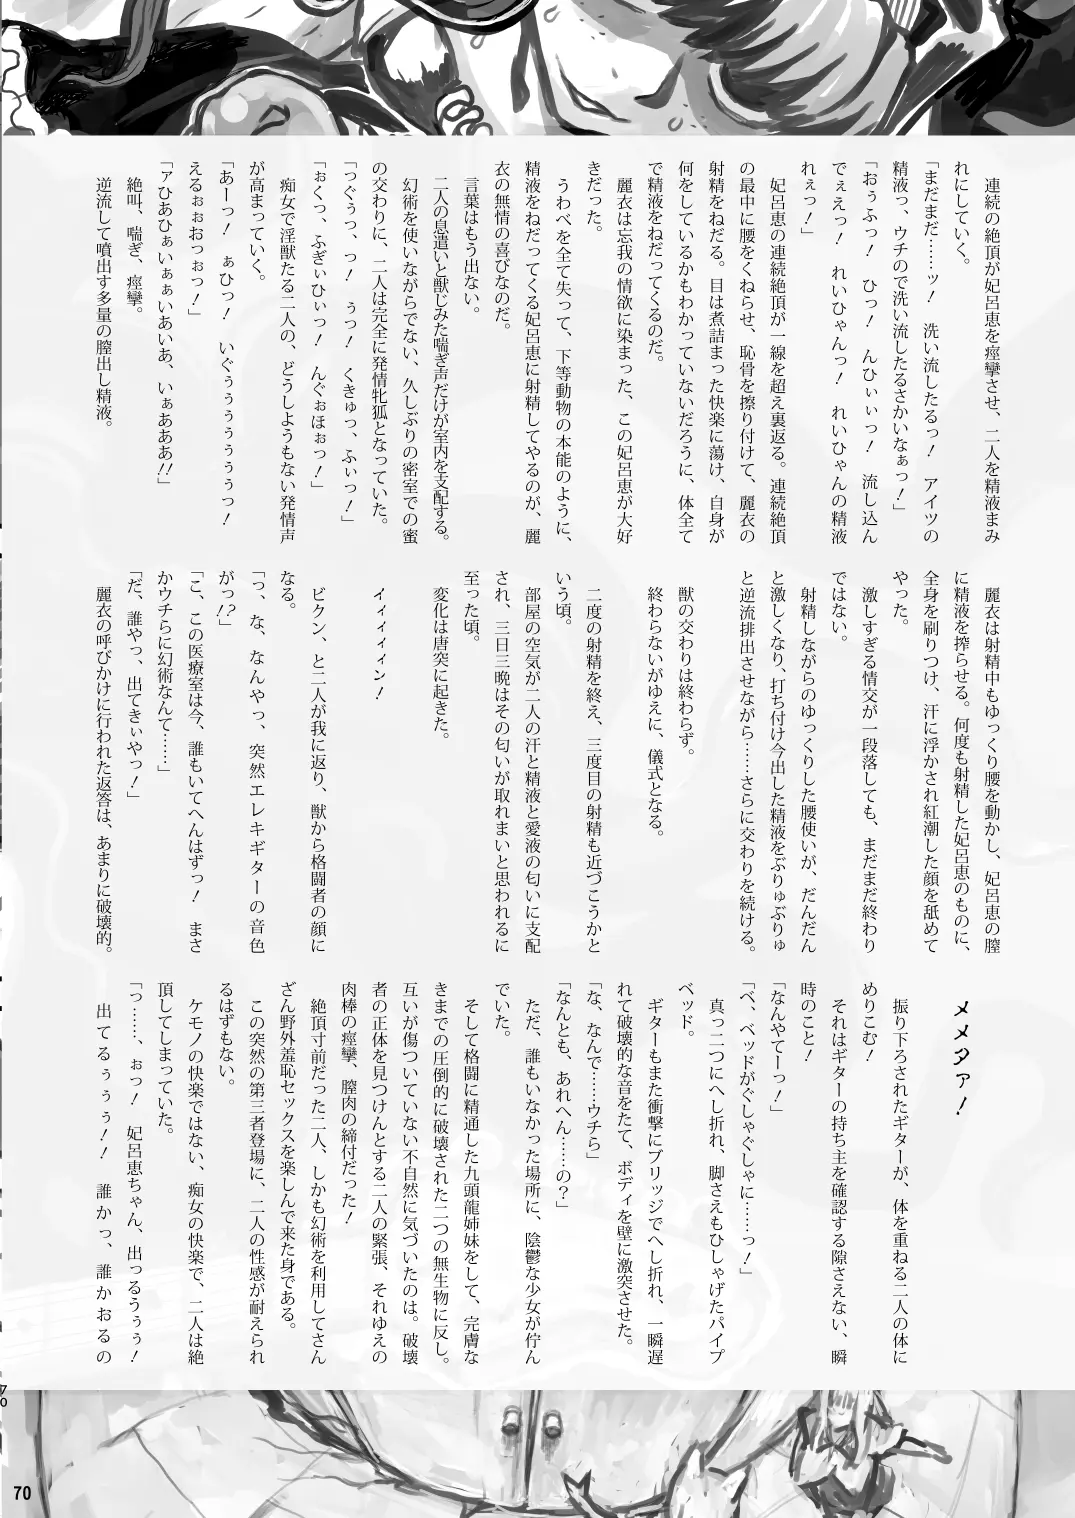 連続の絶頂が妃呂恵を痙攣させ、二人を精液まみ
れにしていく。
「まだまだ……ッ！　洗い流したるっ！　アイツの
精液っ、ウチので洗い流したるさかいなぁっ！」
「おぅふっ！　ひっ！　んひぃぃっ！　流し込ん
でぇえっ！　れいひゃんっ！　れいひゃんの精液
れぇっ！」
　妃呂恵の連続絶頂が一線を超え裏返る。連続絶頂
の最中に腰をくねらせ、恥骨を擦り付けて、麗衣の
射精をねだる。目は煮詰まった快楽に蕩け、自身が
何をしているかもわかっていないだろうに、体全て
で精液をねだってくるのだ。
　麗衣は忘我の情欲に染まった、この妃呂恵が大好
きだった。
　うわべを全て失って、下等動物の本能のように、
精液をねだってくる妃呂恵に射精してやるのが、麗
衣の無情の喜びなのだ。
　言葉はもう出ない。
　二人の息遣いと獣じみた喘ぎ声だけが室内を支配する。
　幻術を使いながらでない、久しぶりの密室での蜜
の交わりに、二人は完全に発情牝狐となっていた。
「つぐぅっ、っ！　ぅっ！　くきゅっ、ふぃっ！」
「ぉくっ、ふぎぃひぃっ！　んぐぉほぉっ！」
　痴女で淫獣たる二人の、どうしようもない発情声
が高まっていく。
「あーっ！　ぁひっ！　いぐぅぅぅぅぅぅぅっ！
えるぉぉおっぉっ！」
「ァひあひぁいぁぁいあいあ、いぁあああ!!」
　絶叫、喘ぎ、痙攣。
　逆流して噴出す多量の膣出し精液。
　麗衣は射精中もゆっくり腰を動かし、妃呂恵の膣
に精液を搾らせる。何度も射精した妃呂恵のものに、
全身を刷りつけ、汗に浮かされ紅潮した顔を舐めて
やった。
　激しすぎる情交が一段落しても、まだまだ終わり
ではない。
　射精しながらのゆっくりした腰使いが、だんだん
と激しくなり、打ち付け今出した精液をぶりゅぶりゅ
と逆流排出させながら……さらに交わりを続ける。
　獣の交わりは終わらず。
　終わらないがゆえに、儀式となる。
　二度の射精を終え、三度目の射精も近づこうかと
いう頃。
　部屋の空気が二人の汗と精液と愛液の匂いに支配
され、三日三晩はその匂いが取れまいと思われるに
至った頃。
　変化は唐突に起きた。
　ィィィィィン！
　ビクン、と二人が我に返り、獣から格闘者の顔に
なる。
「っ、な、なんやっ、突然エレキギターの音色
がっ!?」
「こ、この医療室は今、誰もいてへんはずっ！　まさ
かウチらに幻術なんて……」
「だ、誰やっ、出てきぃやっ！」
　麗衣の呼びかけに行われた返答は、あまりに破壊的。
メメタァ！
　振り下ろされたギターが、体を重ねる二人の体に
めりこむ！
　それはギターの持ち主を確認する隙さえない、瞬
時のこと！
「なんやてーっ！」
「ベ、ベッドがぐしゃぐしゃに……っ！」
　真っ二つにへし折れ、脚さえもひしゃげたパイプ
ベッド。
　ギターもまた衝撃にブリッジでへし折れ、一瞬遅
れて破壊的な音をたて、ボディを壁に激突させた。
「な、なんで……ウチら」
「なんとも、あれへん……の？」
　ただ、誰もいなかった場所に、陰鬱な少女が佇ん
でいた。
　そして格闘に精通した九頭龍姉妹をして、完膚な
きまでの圧倒的に破壊された二つの無生物に反し。
互いが傷ついていない不自然に気づいたのは。破壊
者の正体を見つけんとする二人の緊張、それゆえの
肉棒の痙攣、膣肉の締付だった！
　絶頂寸前だった二人、しかも幻術を利用してさん
ざん野外羞恥セックスを楽しんで来た身である。
　この突然の第三者登場に、二人の性感が耐えられ
るはずもない。
　ケモノの快楽ではない、痴女の快楽で、二人は絶
頂してしまっていた。
「っ……、ぉっ！　妃呂恵ちゃん、出っるうぅぅ！
　出てるぅぅぅ！！　誰かっ、誰かおるの
70
70